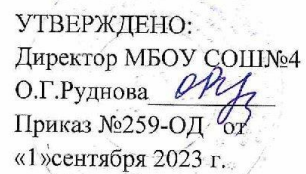 УТВЕРЖДЕНО:
Директор МБОУ СОШ№4
О.Г.Руднова
Приказ №259-ОД от
«1»сентября 2023 г.